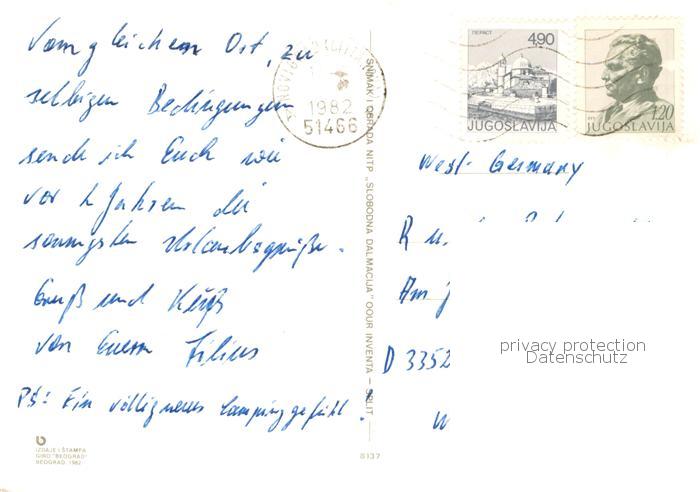 Vom gleichen Ort, zu
selbigen Bedingungen
sende ich Euch wie
vor 2 Jahren die
sonnigsten Urlaubsgrüße.
Gruß und Kuß
von Euerm Filius
PS: Ein völlig neues Campinggefühl!
IZDAJE I ŠTAMPA
GIRO "BEOGRAD"
BEOGRAD, 1982.
SNIMAK I OBRADA NITP „SLOBODNA DALMACIJA" OOUR INVENTA – SPLIT
8137
1982
51466
ПЕРАСТ
4,90
JUGOSLAVIJA
1,20
JUGOSLAVIJA
West-Germany
R u.
Am
D 3352
W
privacy protection
Datenschutz